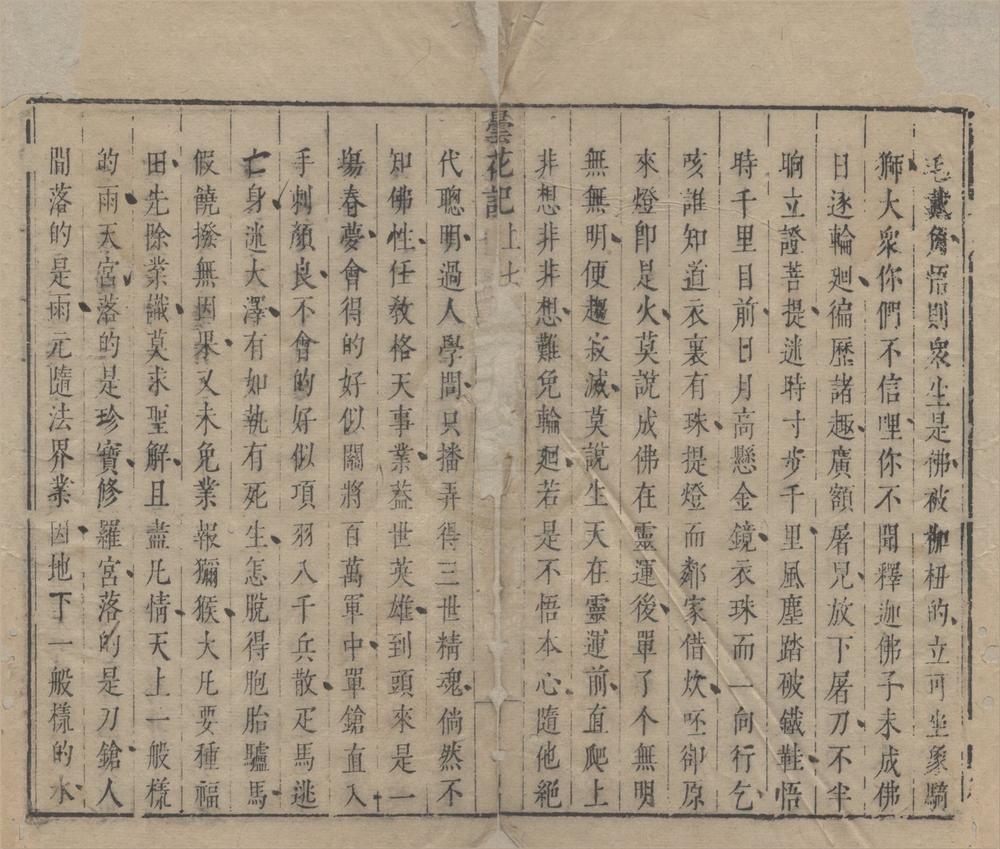 毛戴角悟則衆生是佛被枷杻的立可坐象騎
獅大衆你們不信哩你不聞釋迦佛子未成佛
日逐輪廻徧歷諸趣廣額屠兒放下屠刀不半
晌立證菩提迷時寸步千里風塵踏破鐵鞋悟
時千里目前日月高懸金鏡衣珠而一向行乞
咳誰知道衣裏有珠提燈而鄰家借炊呸卻原
來燈卽是火莫說成佛在靈運後單了个無明
無無明便趨寂滅莫說生天在靈運前直爬上
非想非非想難免輪廻若是不悟本心隨他絕
曇花記 上 七
代聰明過人學問只播弄得三世精魂倘然不
知佛性任教格天事業葢世英雄到頭來是一
塲春夢會得的好似關將百萬軍中單鎗直入
手刺顏良不會的好似項羽八千兵散疋馬逃
亡身迷大澤有如執有死生怎脫得胞胎驢馬
假饒撥無因果又未免業報獼猴大凡要種福
田先除業識莫求聖解且盡凡情天上一般樣
的雨天宮落的是珍寶修羅宮落的是刀鎗人
間落的是雨元隨法界業因地下一般樣的水